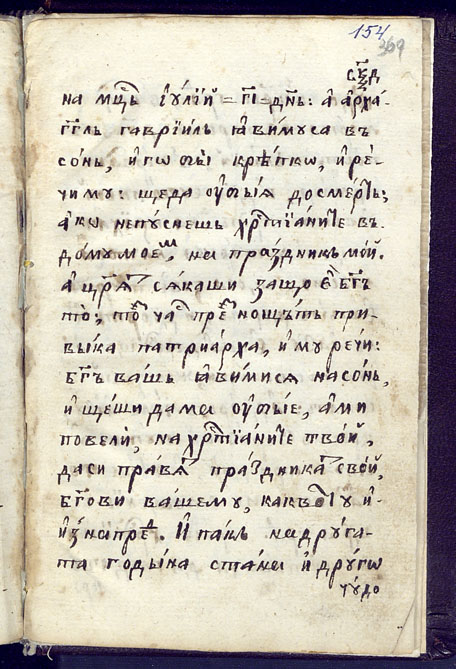 154
369
на мц҃ъ і҆у́лїй = г҃і = дн҃ь: а҆ а҆рха́-
гг҃ль гаврїи́ль ꙗ҆ви́мꙋса въ
со́нь, и҆гѡ ѹ҆пы̀ крѣ́пкѡ, и҆ре́-
чимꙋ: ще́да ѹ҆пы́ꙗ до сме́рть;
а҆кѡ непꙋ́снешь хрⷭ҇тїѧ́ните въ
до́мꙋ мое́мъ, на пра́здникъ мо́й.
а҆ цр҃ѧ сѧ́каши защо̀ є҆ бг҃ъ
то̀; то́ ча́с пре́з нощъ́тъ при-
вы́ка патриа́рха, и҆мꙋ речѝ:
бг҃ъ ва́шь ꙗ҆ви́мисѧ на со́нь,
и҆ ще́ши да ма ѹ҆пы́е, а҆ ми
повелѝ, на хрⷭ҇тїѧ́ните тво́й,
да си пра́вѧт пра́здника сво́й,
бг҃ови ва́шемꙋ, ка́квото и҆-
и҆знапре́д. И҆ па́къ на дрꙋ́га-
та годы́на ста́на и҆ дрꙋ́го
чꙋ́до